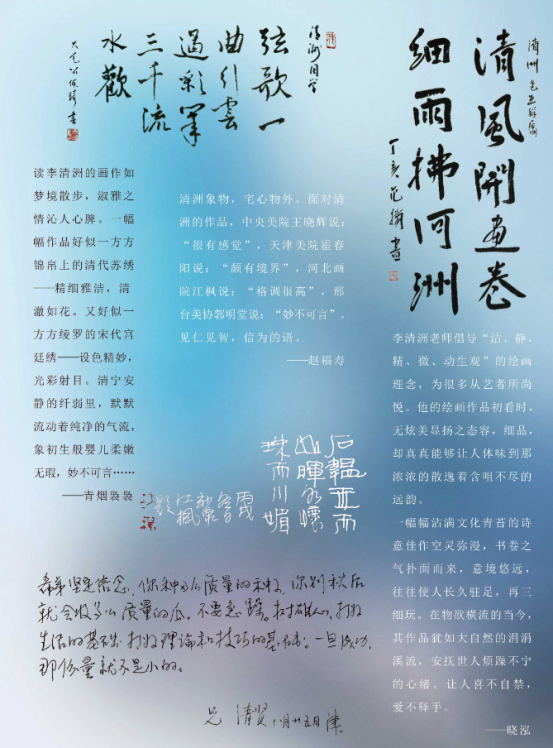 清洲先生雅属
清風開畫卷
細雨拂河洲
丁亥
清洲同学
弦歌一
曲引雲
過彩筆
三千流
水歡
读李清洲的画作如
梦境散步，淑雅之
情沁人心脾。一幅
幅作品好似一方方
锦帛上的清代苏绣
——精细雅洁，清
澈如花。又好似一
方方绫罗的宋代宫
廷绣——设色精妙，
光彩射目。清宁安
静的纤弱里，默默
流动着纯净的气流，
象初生般婴儿柔嫩
无瑕，妙不可言……
——青烟袅袅
清洲象物，宅心物外。面对清
洲的作品，中央美院王晓辉说：
“很有感觉”，天津美院崔春
阳说：“颇有境界”，河北画
院江枫说：“格调很高”，邢
台美协郭明堂说：“妙不可言”。
见仁见智，信为的语。
——赵福寿
李清洲老师倡导“洁、静、
精、微、动生观”的绘画
理念，为很多从艺者所尚
悦。他的绘画作品初看时，
无炫美显扬之态容，细品，
却真真能够让人体味到那
浓浓的散逸着含咀不尽的
远韵。
一幅幅沾满文化青苔的诗
意佳作空灵弥漫，书卷之
气扑面而来，意境悠远，
往往使人长久驻足，再三
细玩。在物欲横流的当今，
其作品犹如大自然的涓涓
溪流，安抚世人烦躁不宁
的心绪。让人喜不自禁，
爱不释手。
——晓泓
石韞玉而
山暉水懷
珠而川媚
江楓
希望坚定信念，你种了什么质量的种子，你到秋后
就会收多么质量的瓜。不要急躁。打好
生活的基础 打好理论和技巧的基础。一旦成功，
那份量就不是小的。
兄 清贤 八月廿五日 津